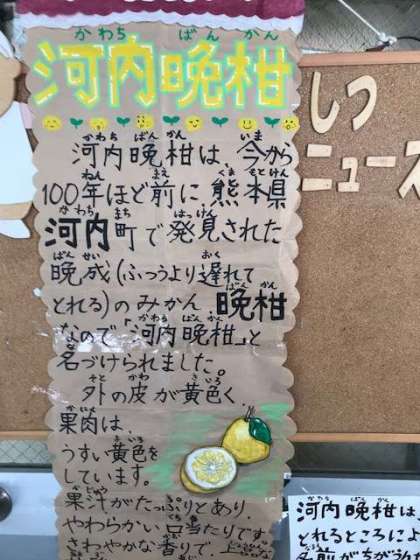 かわち ばんかん
河内晩柑
かわち ばん かん いま
河内晩柑は、今から
ねん まえ くま もと けん
100年ほど前に、熊本県
かわち まち はっけん
河内町で発見された
ばん せい おく
晩成(ふつうより遅れて
ばん かん
とれる)のみかん、晩柑
かわち ばん かん
なので「河内晩柑」と
な
名づけられました。
そと かわ きいろ
外の皮が黄色く、
果肉は、
きいろ
うすい黄色を
しています。
果汁がたっぷりとあり、
やわらかい口当たりです。
さわやかな香りで、上
しつ
ニュース
かわち ばんかん
河内晩柑は、
とれるところによ
名前がちがうん